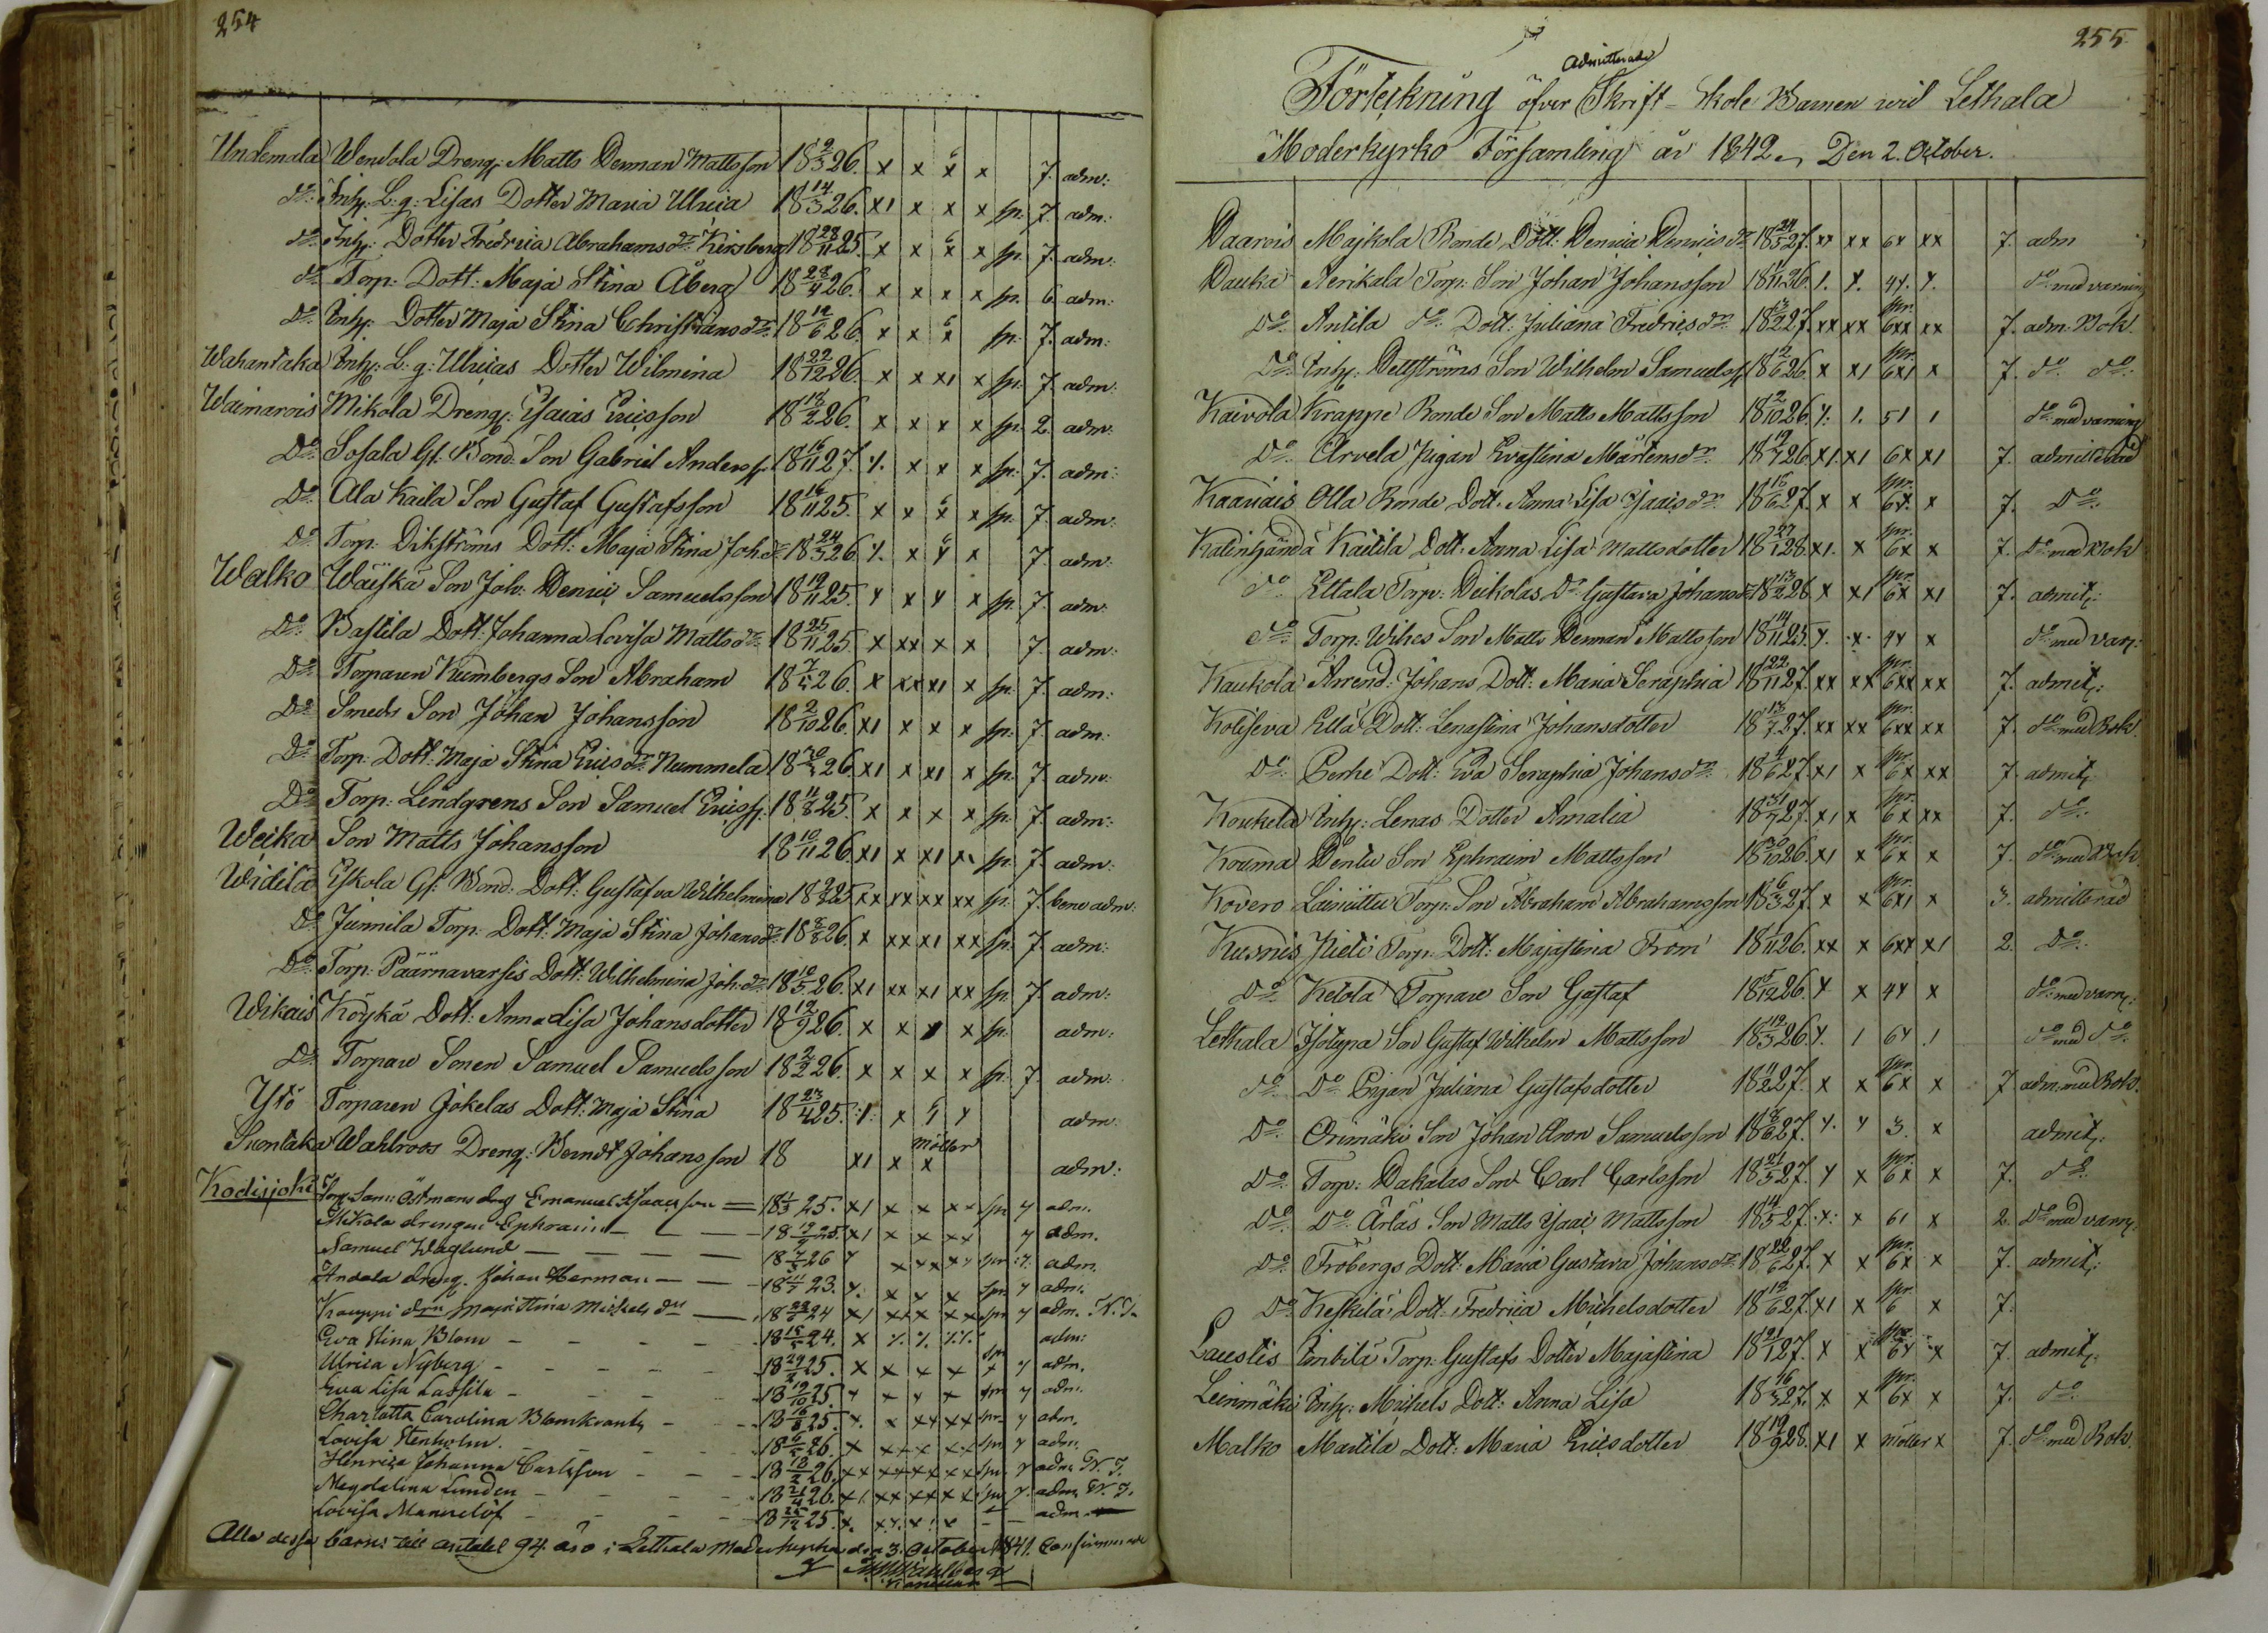 254
Undemala Wendola Dreng: Matts Herman Mattsson 18 2/3 26. x x 6/x x 7. adm:
do: Inh: L: g: Lisas Dotter Maria Ulrica 18 14/3 26. x1 x x x sp. 7. adm:
do. Inh: Dotter Fredrica Abrahams dr Kirsberg 18 28/11 25. x x 6/x x sp. 7. adm:
do. Torp: Dott: Maja Stina Åberg 18 28/4 26. x x x x sp. 6 adm:
Do. Inh: Dotter Maja Stina Christians dr 18 12/6 26. x x 6/x sp. 7. adm:
Wahantaka Inh: L: g: Ulricas Dotter Wilmina 18 22/12 26. x x x1 x sp. 7. adm:
Waimarois Mikola Dreng: Esaias Ericsson 18 18/2 26. x x x x sp. 2. adm:
Do. Sosala Gl: Bond: Son Gabriel Anderss: 18 16/11 27. 1. x x x sp. 7. adm:
Do. Ala Kaila Son Gustaf Gustafsson 18 16/11 25. x x 6/x x sp. 7. adm:
Do. Torp: Dikströms Dott: Maja Stina Joh. dr 18 24/5 26. 1. x 6/y x 7. adm:
Walko Wäiskä Son Joh: Henric Samuelsson 18 19/11 25. y x y x sp. 7. adm:
Do. Bastila Dott: Johanna Lovisa Matts dr 18 25/11 25. x xx x x 7. adm:
Do. Torparen Kumbergs Son Abraham 18 7/4 26. x xx x1 x sp. 7. adm:
Do. Smeds Son Johan Johansson 18 2/10 26. x1 x x x sp. 7. adm:
Do. Torp: Dott: Maja Stina Erics dr Nummela 18 20/4 26. x1 x x1 x sp. 7. adm:
Do. Torp: Lindgrens Son Samuel Ericss: 18 11/8 25. x x x x sp. 7. adm:
Weika Son Matts Johansson 18 10/11 26. x1 x x1 x1 sp. 7. adm:
Widila Eskola Gl: Bond: Dott: Gustafva Wilhelmina 18 2/8 25. xx xx xx xx sp. 7. bene adm:
Do. Junnila Torp: Dott: Maja Stina Johans dr 18 8/8 26. x xx x1 xx sp. 7. adm:
Do. Torp: Päärnavarsis Dott: Wilhelmina Joh: dr 18 10/5 26. x1 xx x1 xx sp. 7. adm:
Wikais Köykä Dott: Anna Lisa Johansdotter 18 12/9 26. x x x x sp. adm:
Do. Torpare Sonen Samuel Samuelsson 18 2/2 26. x x x x sp. 7. adm:
Ytö Torparen Jokelas Dott: Maja Stina 18 23/4 25. 1. x 6/1 y adm:
Suontaka Wahlroos Dreng: Berndt Johansson 18 x1 x x möller adm:
Kodisjoki Torp: Son: Östmans drg Emanuel Isaacsson 18 1/3 25. x1 x x xx spr 7 adm.
Mikola drengen Ephraim 18 19/9 25. x1 x x xx 7 adm.
Samuel Waglund 18 7/5 26 y x xx xy spr. 7. adm.
Andala dreng. Johan Herman 18 11/7 23. y. x x x spr 7 adm.
Kauppi drn Maja Stina Michels dtr 18 28/8 24 x1 xx x xx spr 7 adm. N. J.
Eva Stina Blom 18 15/5 24. x 1/. 1/. 1/1. adm:
Ulrica Nyberg 18 29/2 25. x x x x spr 7 adm.
Eva Lisa Lassila 18 19/10 25. y x y x spr 7 adm.
Charlotta Carolina Blomkrantz 18 16/8 25. y. x xx xx spr 7 adm.
Lovisa Stenholm. 18 6/5 26. x xx x xx spr 7 adm.
Henrica Johanna Carlsson 18 13/2 26. xx xx xx xx spr 7 adm. N. J.
Magdalina Lunden 18 21/4 26. x1. xx xx xx spr 7. adm. N. J.
Lovisa Mannelöf 18 25/12 25. x. xy. x x adm.
Alla dessa barn: till antalet 94 äro i Lethala Moderkyrka den 3. October 1841. Confirmerade
255
Förteckning öfver Admitterade Skrift-Skole Barnen wid Lethala
Moderkyrko Församling år 1842. Den 2. October.
Haarois Majkola Bonde Dott: Henrica Henrics dr 18 24/5 27. xx xx 6x xx 7. adm
Hauka Aerikala Torp: Son Johan Johansson 18 1/11 26. 1. y. 4y. y. do med varning
Do. Antila do. Dott: Juliana Fredrics dr 18 3/2 27. xx xx spr. 6xx xx 7. adm: Bok.
Do. Inh: Dettströms Son Wilhelm Samuelss: 18 2/6 26 x x1 spr. 6x1 x 7. do. do.
Kaivola Krappe Bonde Son Matts Mattsson 18 2/10 26 y. 1. 51 1 do. med varning
Do. Arvela pigan Evastina Mårtens dr 18 19/7 26 x1. x1 6x x1 7. admitterad
Kaariais Olla Bonde Dott: Anna Lisa Isaacs dr 18 16/6 27. x x spr. 6x. x 7. Do.
Katinhändä Kaitila Dott: Anna Lisa Mattsdotter 18 27/1 28. x1. x spr. 6x x 7. do med Bok
do Ettala Torp: Heikolas Dr Gustava Johans dr 18 13/2 26 x x1 spr. 6x x1 7. admit:
do. Torp: Wihes Son Matts Herman Mattsson 18 14/11 25. y. x 4y x do med varn:
Kaukola Arrend: Johans Dott: Maria Seraphia 18 22/11 27. xx xx spr. 6xx xx 7. admit:
Koliseva Ella Dott: Lenastina Johansdotter 18 13/7 27. xx xx spr. 6xx xx 7. do med Bok.
Do. Perhe Dott: Eva Seraphia Johans dr 18 4/6 27. x1 x spr. 6x xx 7. admit:
Koukela Inh: Lenas Dotter Amalia 18 31/7 27. x1 x spr. 6x xx 7. do.
Kouma Penttu Son Ephraim Mattsson 18 30/10 26. x1 x spr. 6x x 7. do med Bok
Kovero Torp: Son Abraham Abrahamsson 18 6/3 27. x x spr. 6x1 x 3. admitterad
Kusnis Kieli Torp: Dott: Majastina From 18 1/11 26. xx x 6xx x1 2. Do.
Do. Ketola Torpare Son Gustaf 18 5/12 26. y x 4y x do med varn:
Lethala Isotupa Son Gustaf Wilhelm Mattsson 18 12/3 26 y. 1 6y .1 do med do.
do. Do Pigan Juliana Gustafsdotter 18 11/2 27. x x spr. 6x x 7 adm: med Bok.
Do. Orimäki Son Johan Aron Samuelsson 18 8/6 27. y. y 3. x admit:
Do. Torp: Hakalas Son Carl Carlsson 18 21/5 27. y x spr. 6x x 7. do.
Do. Do. Ärläs Son Matts Isaac Mattsson 18 14/5 27. y. x 61 x 2. Do med varn:
Do. Fröbergs Dott: Maria Gustava Johans dr 18 22/6 27. x x spr. 6x x 7. admit:
Do. Keskitä Dott: Fredrica Michelsdotter 18 12/6 27. x1 x spr. 6 x 7.
Laustis Tinkilä Torp: Gustafs Dotter Majastina 18 21/1 27. x x spr. 6y x 7. admit:
Leinmäki Inh: Michels Dott: Anna Lisa 18 16/5 27. x x spr. 6x x 7. do.
Malko Martila Dott: Maria Ericsdotter 18 19/9 28. x1 x möller x 7. do med Bok.